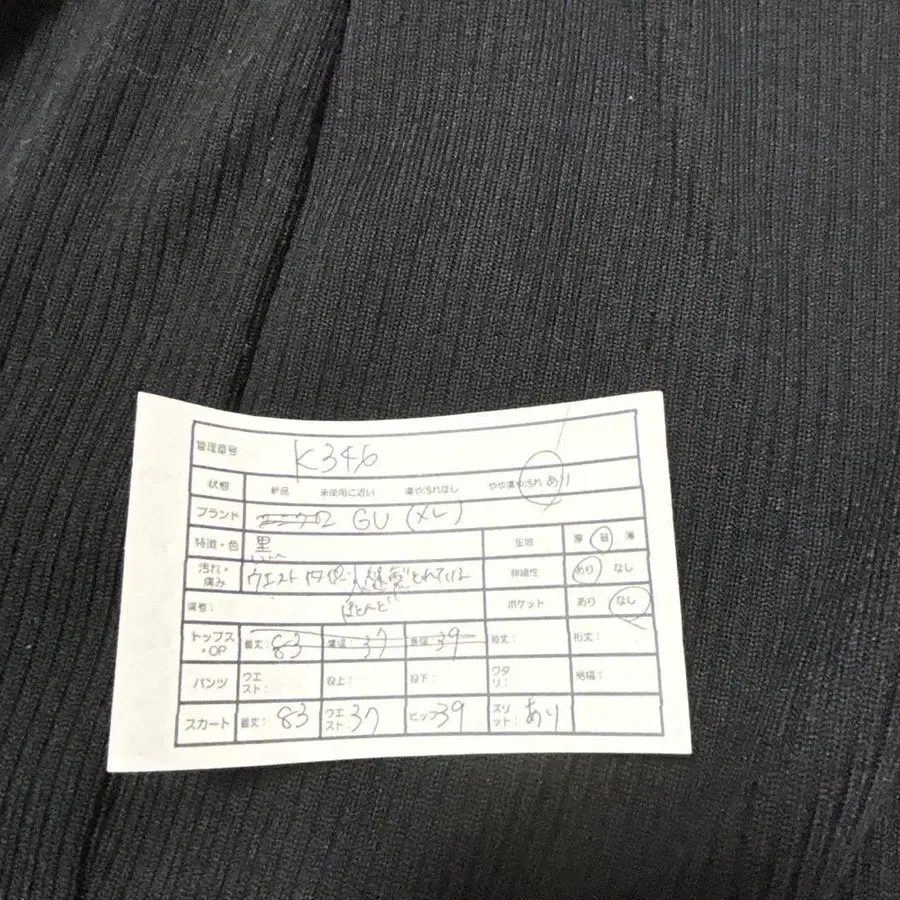 管理番号 K346
状態 新品 未使用に近い 傷や汚れなし やや傷や汚れあり
ブランド GU (メレ)
特徴・色 黒 生地 厚 普 薄
汚れ・痛み ウエスト とれている 伸縮性 あり なし
備考: ほとんど ポケット あり なし
トップス・OP 着丈: 83 37 39 袖丈: 裄丈:
パンツ ウエスト: 股上: 股下: ワタリ: 裾幅:
スカート 着丈: 83 ウエスト: 37 ヒップ 39 スリット: あり